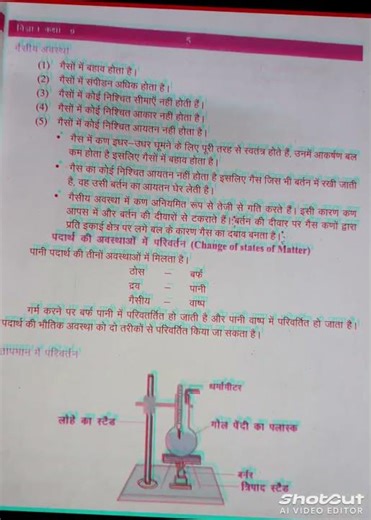 विज्ञान कक्षा 9
5
गैसीय अवस्था
(1) गैसों में बहाव होता है।
(2) गैसों में संपीडन अधिक होता है।
(3) गैसों में कोई निश्चित सीमाएँ नहीं होती है।
(4) गैसों में कोई निश्चित आकार नहीं होता है।
(5) गैसों में कोई निश्चित आयतन नहीं होता है।
• गैस में कण इधर-उधर घूमने के लिए पूरी तरह से स्वतंत्र होते हैं, उनमें आकर्षण बल
कम होता है इसलिए गैसों में बहाव होता है।
• गैस का कोई निश्चित आयतन नहीं होता है इसलिए गैस जिस भी बर्तन में रखी जाती
है, वह उसी बर्तन का आयतन घेर लेती है।
• गैसीय अवस्था में कण अनियमित रूप से तेजी से गति करते हैं। इसी कारण कण
आपस में और बर्तन की दीवारों से टकराते हैं। बर्तन की दीवार पर गैस कणों द्वारा
प्रति इकाई क्षेत्र पर लगे बल के कारण गैस का दबाव बनता है।
पदार्थ की अवस्थाओं में परिवर्तन (Change of states of Matter)
पानी पदार्थ की तीनों अवस्थाओं में मिलता है।
ठोस – बर्फ
द्रव – पानी
गैसीय – वाष्प
गर्म करने पर बर्फ पानी में परिवतर्तित हो जाती है और पानी वाष्प में परिवर्तित हो जाता है।
पदार्थ की भौतिक अवस्था को दो तरीकों से परिवर्तित किया जा सकता है।
तापमान में परिवर्तन
थर्मामीटर
लोहे का स्टैंड
गोल पेंदी का फ्लास्क
बर्नर
त्रिपाद स्टैंड
Shotcut
AI VIDEO EDITOR